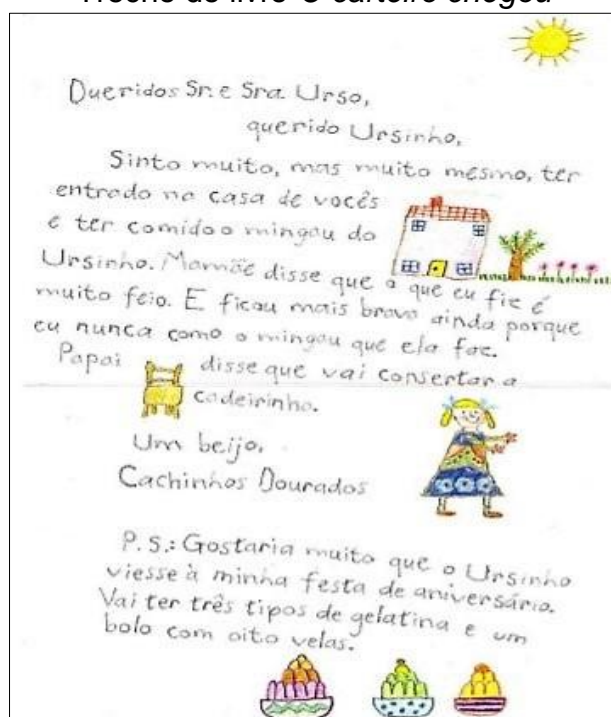 Trecho do livro O carteiro chegou
Queridos Sr. e Sra. Urso,
querido Ursinho,
Sinto muito, mas muito mesmo, ter
entrado na casa de vocês
e ter comido o mingau do
Ursinho. Mamãe disse que o que eu fiz é
muito feio. E ficou mais brava ainda porque
eu nunca como o mingau que ela faz.
Papai disse que vai consertar a
cadeirinha.
Um beijo,
Cachinhos Dourados
P.S.: Gostaria muito que o Ursinho
viesse à minha festa de aniversário.
Vai ter três tipos de gelatina e um
bolo com oito velas.